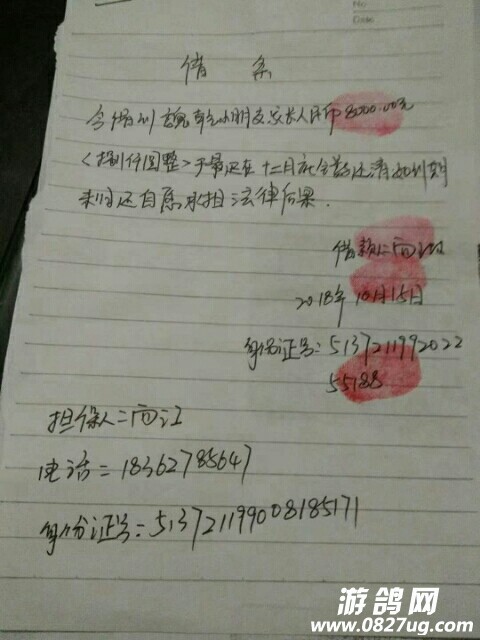 No
Date
借条
今借到 小朋友家长人民币8000.00元
<捌仟圆整>于最迟在十二月底全数还清如到期
未归还自愿承担法律后果.
借款人:
2018年10月15日
身份证号:5137211992022
55188
担保人:
电话:18362785647
身份证号:513721199008185171
游鸽网
www.0827ug.com